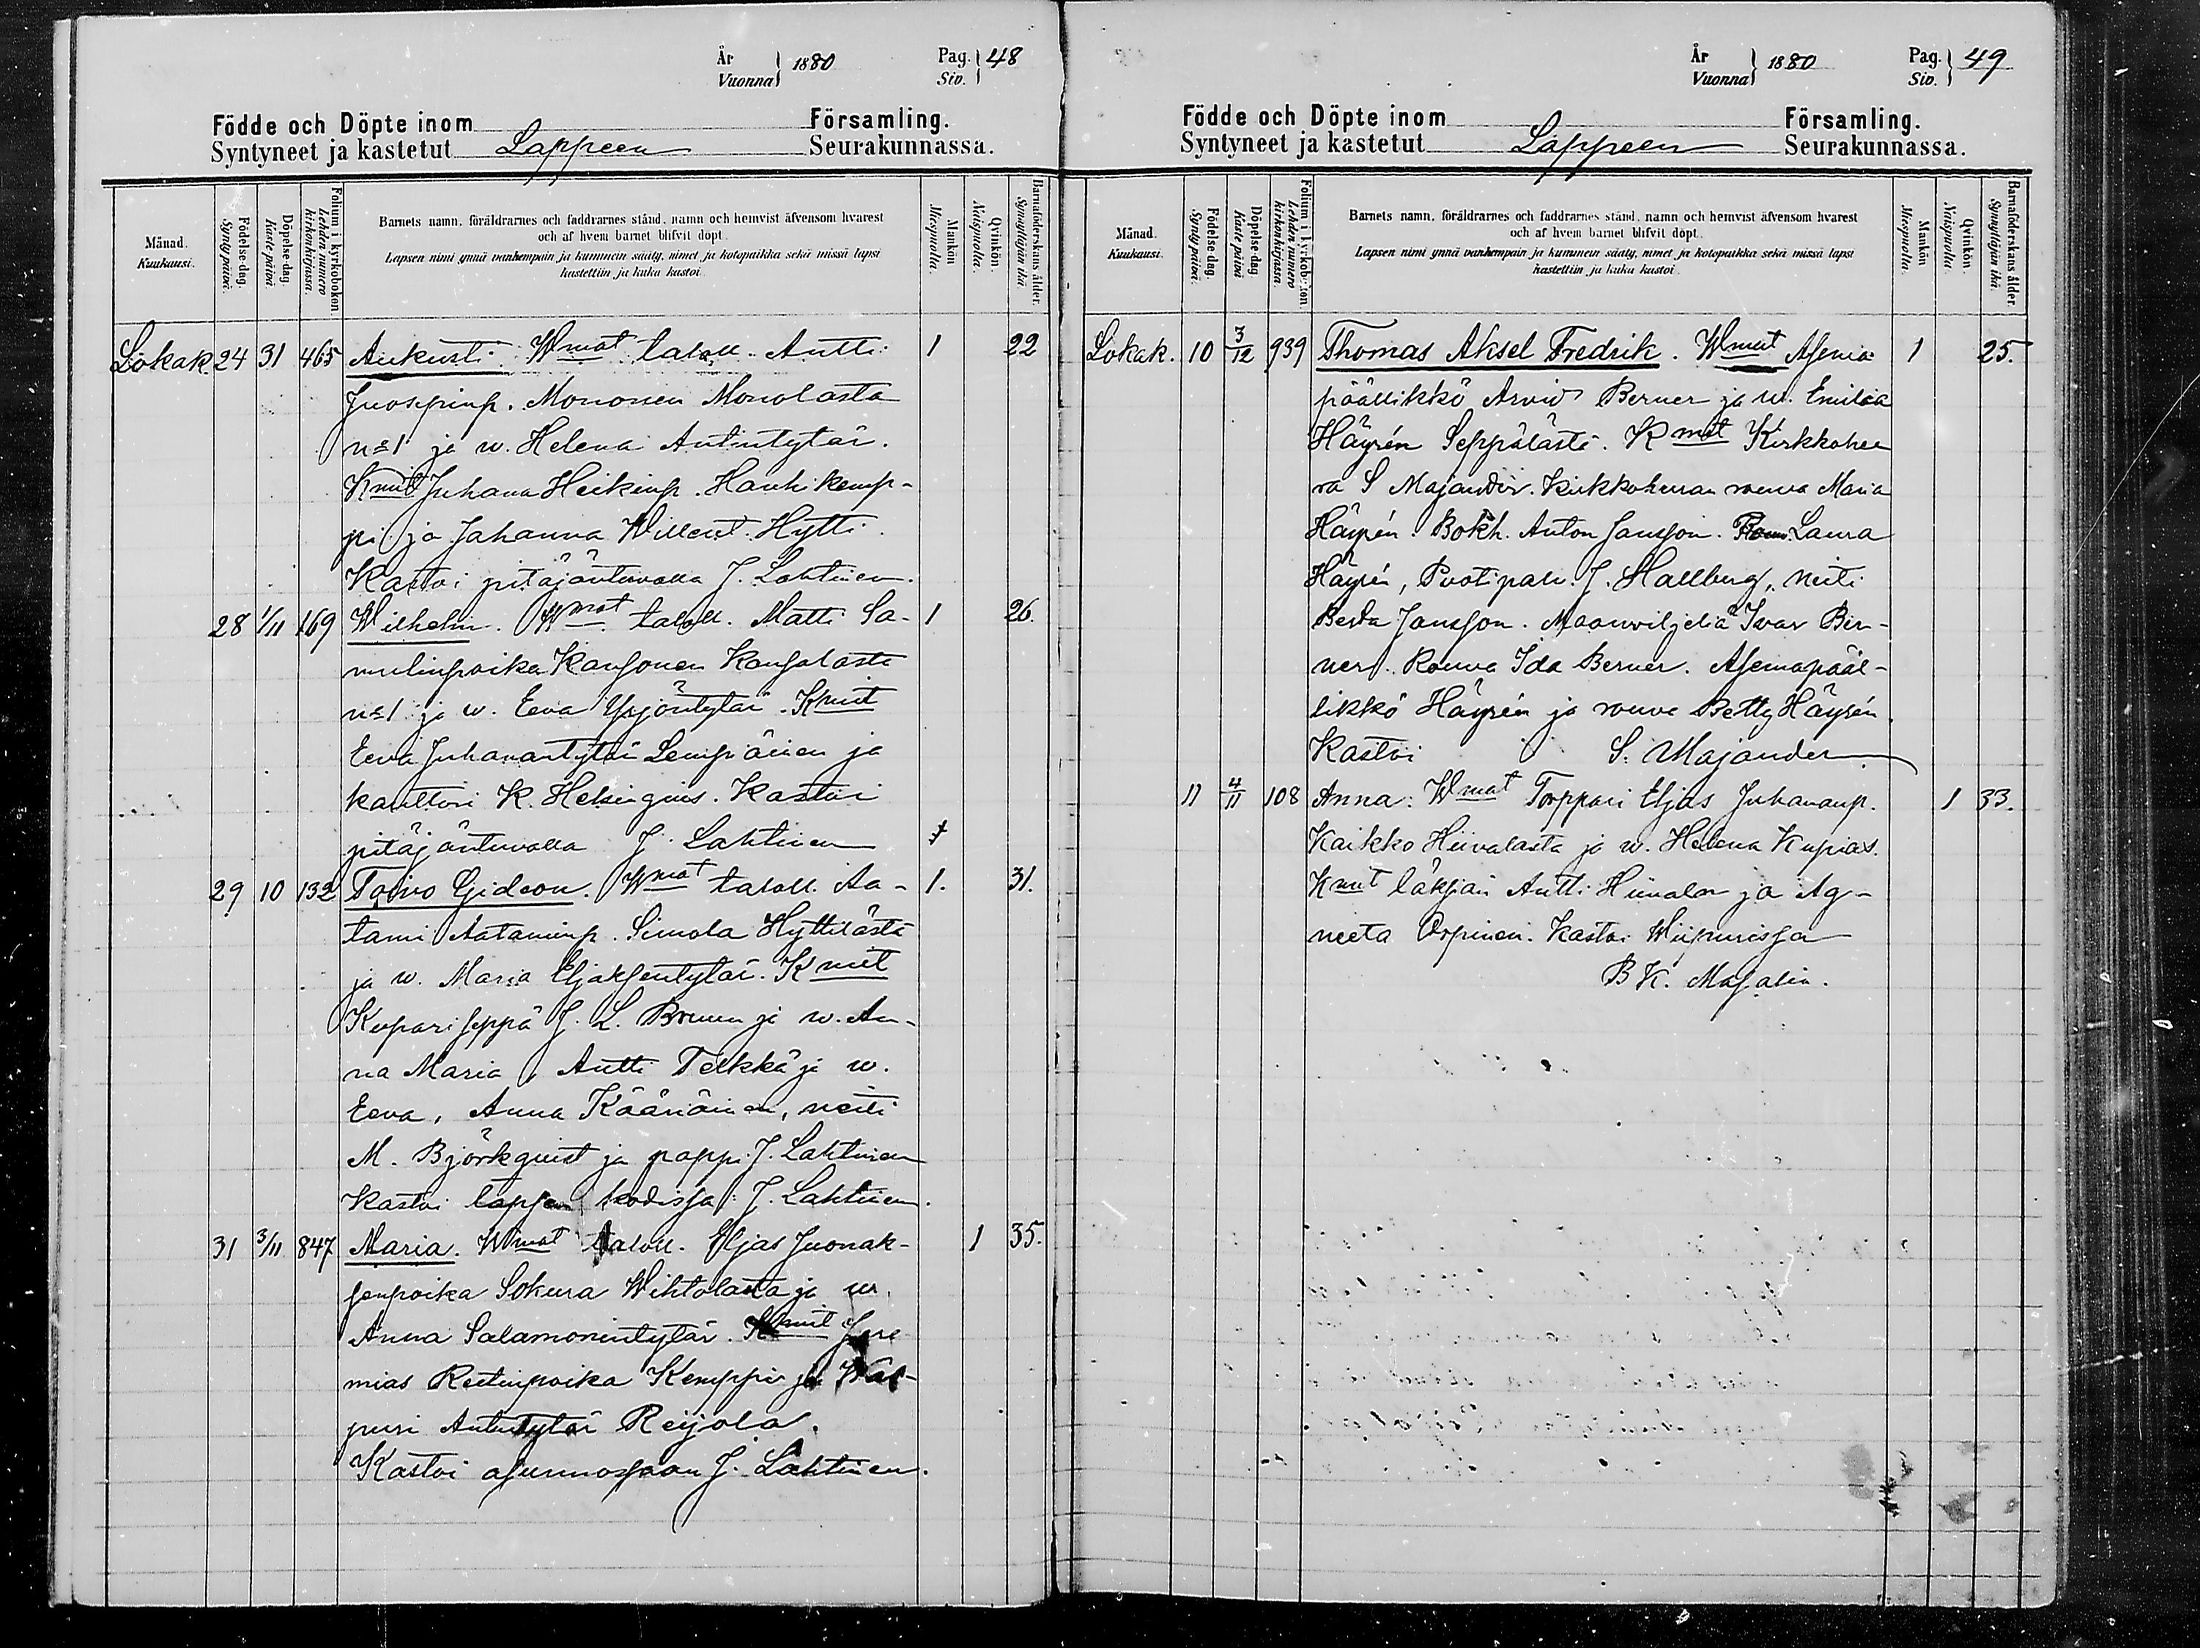 År
Vuonna } 1880
Pag.
Siv. } 48
Födde och Döpte inom Församling.
Syntyneet ja kastetut Lappeen Seurakunnassa.
Månad.
Kuukausi.
Födelse-dag.
Synty päivä.
Döpelse-dag.
Kaste päivä.
Folium i kyrkoboken.
Lehden numero kirkonkirjassa.
Barnets namn, föräldrarnes och faddrarnes stånd, namn och hemvist äfvensom hvarest
och af hvem barnet blifvit döpt.
Lapsen nimi ynnä vanhempain ja kummein sääty, nimet ja kotopaikka sekä missä lapsi
kastettiin ja kuka kastoi.
Mankön
Miespuolta.
Qvinkön.
Naispuolta.
Barnaföderskans ålder.
Synnyttäjän ikä.
Lokak. 24 31 465 Aukusti. Wmat taloll. Antti 1 22
Juosepinp. Mononen Monolasta
n=1 ja w. Helena Antintytär.
Kmit Juhana Heikinp. Hanhikemp-
pi ja Johanna Willent. Hytti.
Kastoi pitäjäntuvalla J. Lahtinen.
28 1/11 169 Wilhelm. Wmat taloll. Matti Sa- 1 26.
mulinpoika Kansonen Kansolasta
n=1 ja w. Eeva Yrjöntytär. Kmit
Eeva Juhanantytär Lempiäinen ja
kanttori K. Helsingius. Kastoi
pitäjäntuvalla J. Lahtinen †
29 10 132 Toivo Gideon. Wmat taloll. Aa- 1. 31.
tami Aataminp. Simola Hyttilästä
ja w. Maria Eljaksentytär. Kmit
Kupariseppä J. L. Brunn ja w. An-
na Maria, Antti Telkkä ja w.
Eeva, Anna Kääriäinen, neiti
M. Björkquist ja pappi J. Lahtinen
Kastoi lapsen kodissa: J. Lahtinen.
31 3/11 847 Maria. Wmat taloll. Eljas Juonak- 1 35.
senpoika Sokura Wihtolasta ja w.
Anna Salamonintytär. Kmit Jere
mias Reetinpoika Kemppi ja Wal-
puri Antintytär Reijola.
Kastoi asunnossaan J. Lahtinen.
År
Vuonna } 1880
Pag.
Siv. } 49
Födde och Döpte inom Församling.
Syntyneet ja kastetut Lappeen Seurakunnassa.
Månad.
Kuukausi.
Födelse-dag.
Synty päivä.
Döpelse-dag.
Kaste päivä.
Folium i kyrkoboken.
Lehden numero kirkonkirjassa.
Barnets namn, föräldrarnes och faddrarnes stånd, namn och hemvist äfvensom hvarest
och af hvem barnet blifvit döpt.
Lapsen nimi ynnä vanhempain ja kummein sääty, nimet ja kotopaikka sekä missä lapsi
kastettiin ja kuka kastoi.
Mankön
Miespuolta.
Qvinkön.
Naispuolta.
Barnaföderskans ålder.
Synnyttäjän ikä.
Lokak. 10 3/12 939 Thomas Aksel Fredrik. Wmat Asema 1 25.
päällikkö Arvid Berner ja w. Emilia
Häyrén Seppälästä. Kmat Kirkkoher
ra S Majander. Kirkkoherran rouva Maria
Häyrén. Bokh. Anton Jansson. Laura
Häyrén, Puotipalv. J. Hallberg, neiti
Berta Jansson. Maanviljeliä Ivar Ber-
ner. Rouva Ida Berner. Asemapääl-
likkö Häyrén ja rouva Betty Häyrén.
Kastoi S. Majander
11 4/11 108 Anna: Wmat Torppari Eljas Juhananp. 1 33.
Kaikko Hiivalasta ja w. Helena Kupias.
Kmit läksiäi Antti Hiivala ja Ag-
neeta Orpinen. Kastoi Wiipurissa
B K. Masalin.